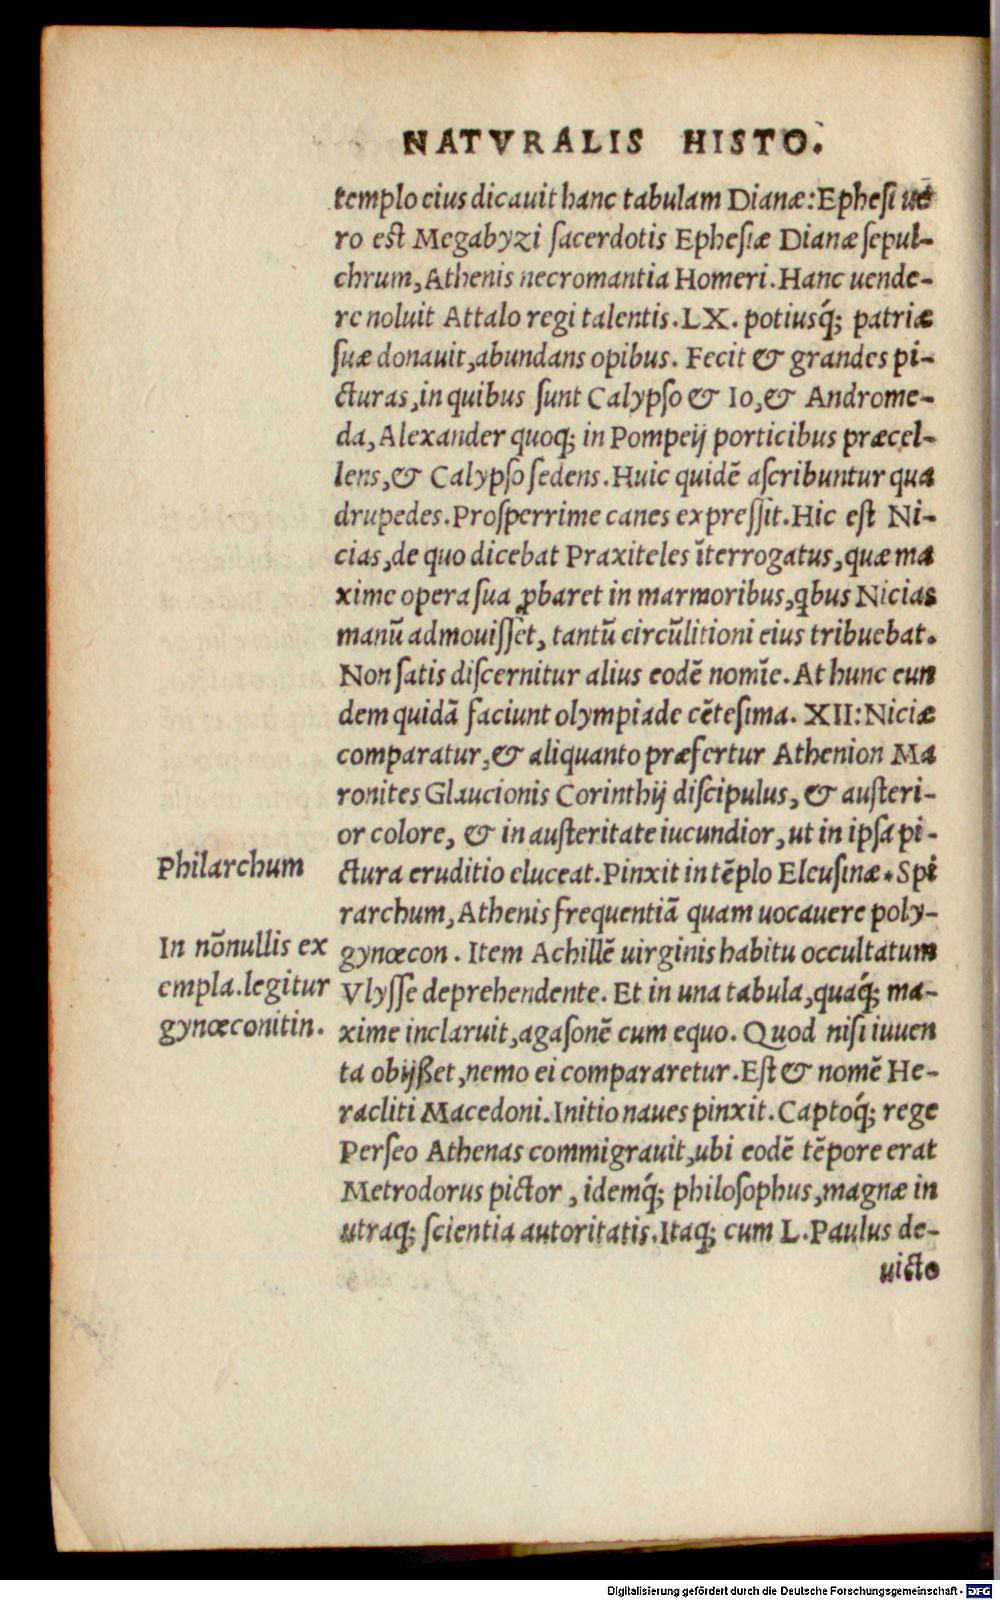 NATVRALIS HISTO.
templo eius dicauit hanc tabulam Dianæ: Ephesi uē
ro est Megabyzi sacerdotis Ephesiæ Dianæ sepul-
chrum, Athenis necromantia Homeri. Hanc uende-
re noluit Attalo regi talentis. LX. potiusq́; patriæ
suæ donauit, abundans opibus. Fecit & grandes pi-
cturas, in quibus sunt Calypso & Io, & Androme-
da, Alexander quoq; in Pompeij porticibus præcel-
lens, & Calypso sedens. Huic quidē ascribuntur qua
drupedes. Prosperrime canes expressit. Hic est Ni-
cias, de quo dicebat Praxiteles īterrogatus, quæ ma
xime opera sua ꝓbaret in marmoribus, qbus Nicias
manū admouisset, tantū circūlitioni eius tribuebat.
Non satis discernitur alius eodē nomīe. At hunc eun
dem quidā faciunt olympiade cētesima. XII: Niciæ
comparatur, & aliquanto præfertur Athenion Ma
ronites Glaucionis Corinthij discipulus, & austeri-
or colore, & in austeritate iucundior, ut in ipsa pi-
ctura eruditio eluceat. Pinxit in tēplo Eleusinæ * Spi
rarchum, Athenis frequentiā quam uocauere poly-
gynœcon. Item Achillē uirginis habitu occultatum
Vlysse deprehendente. Et in una tabula, quaq́; ma-
xime inclaruit, agasonē cum equo. Quod nisi iuuen
ta obijßet, nemo ei compararetur. Est & nomē He-
racliti Macedoni. Initio naues pinxit. Captoq́; rege
Perseo Athenas commigrauit, ubi eodē tēpore erat
Metrodorus pictor, idemq́; philosophus, magnæ in
utraq; scientia autoritatis. Itaq; cum L. Paulus de-
uicto
Philarchum
In nōnullis ex
empla. legitur
gynœconitin.
Digitalisierung gefördert durch die Deutsche Forschungsgemeinschaft - DFG